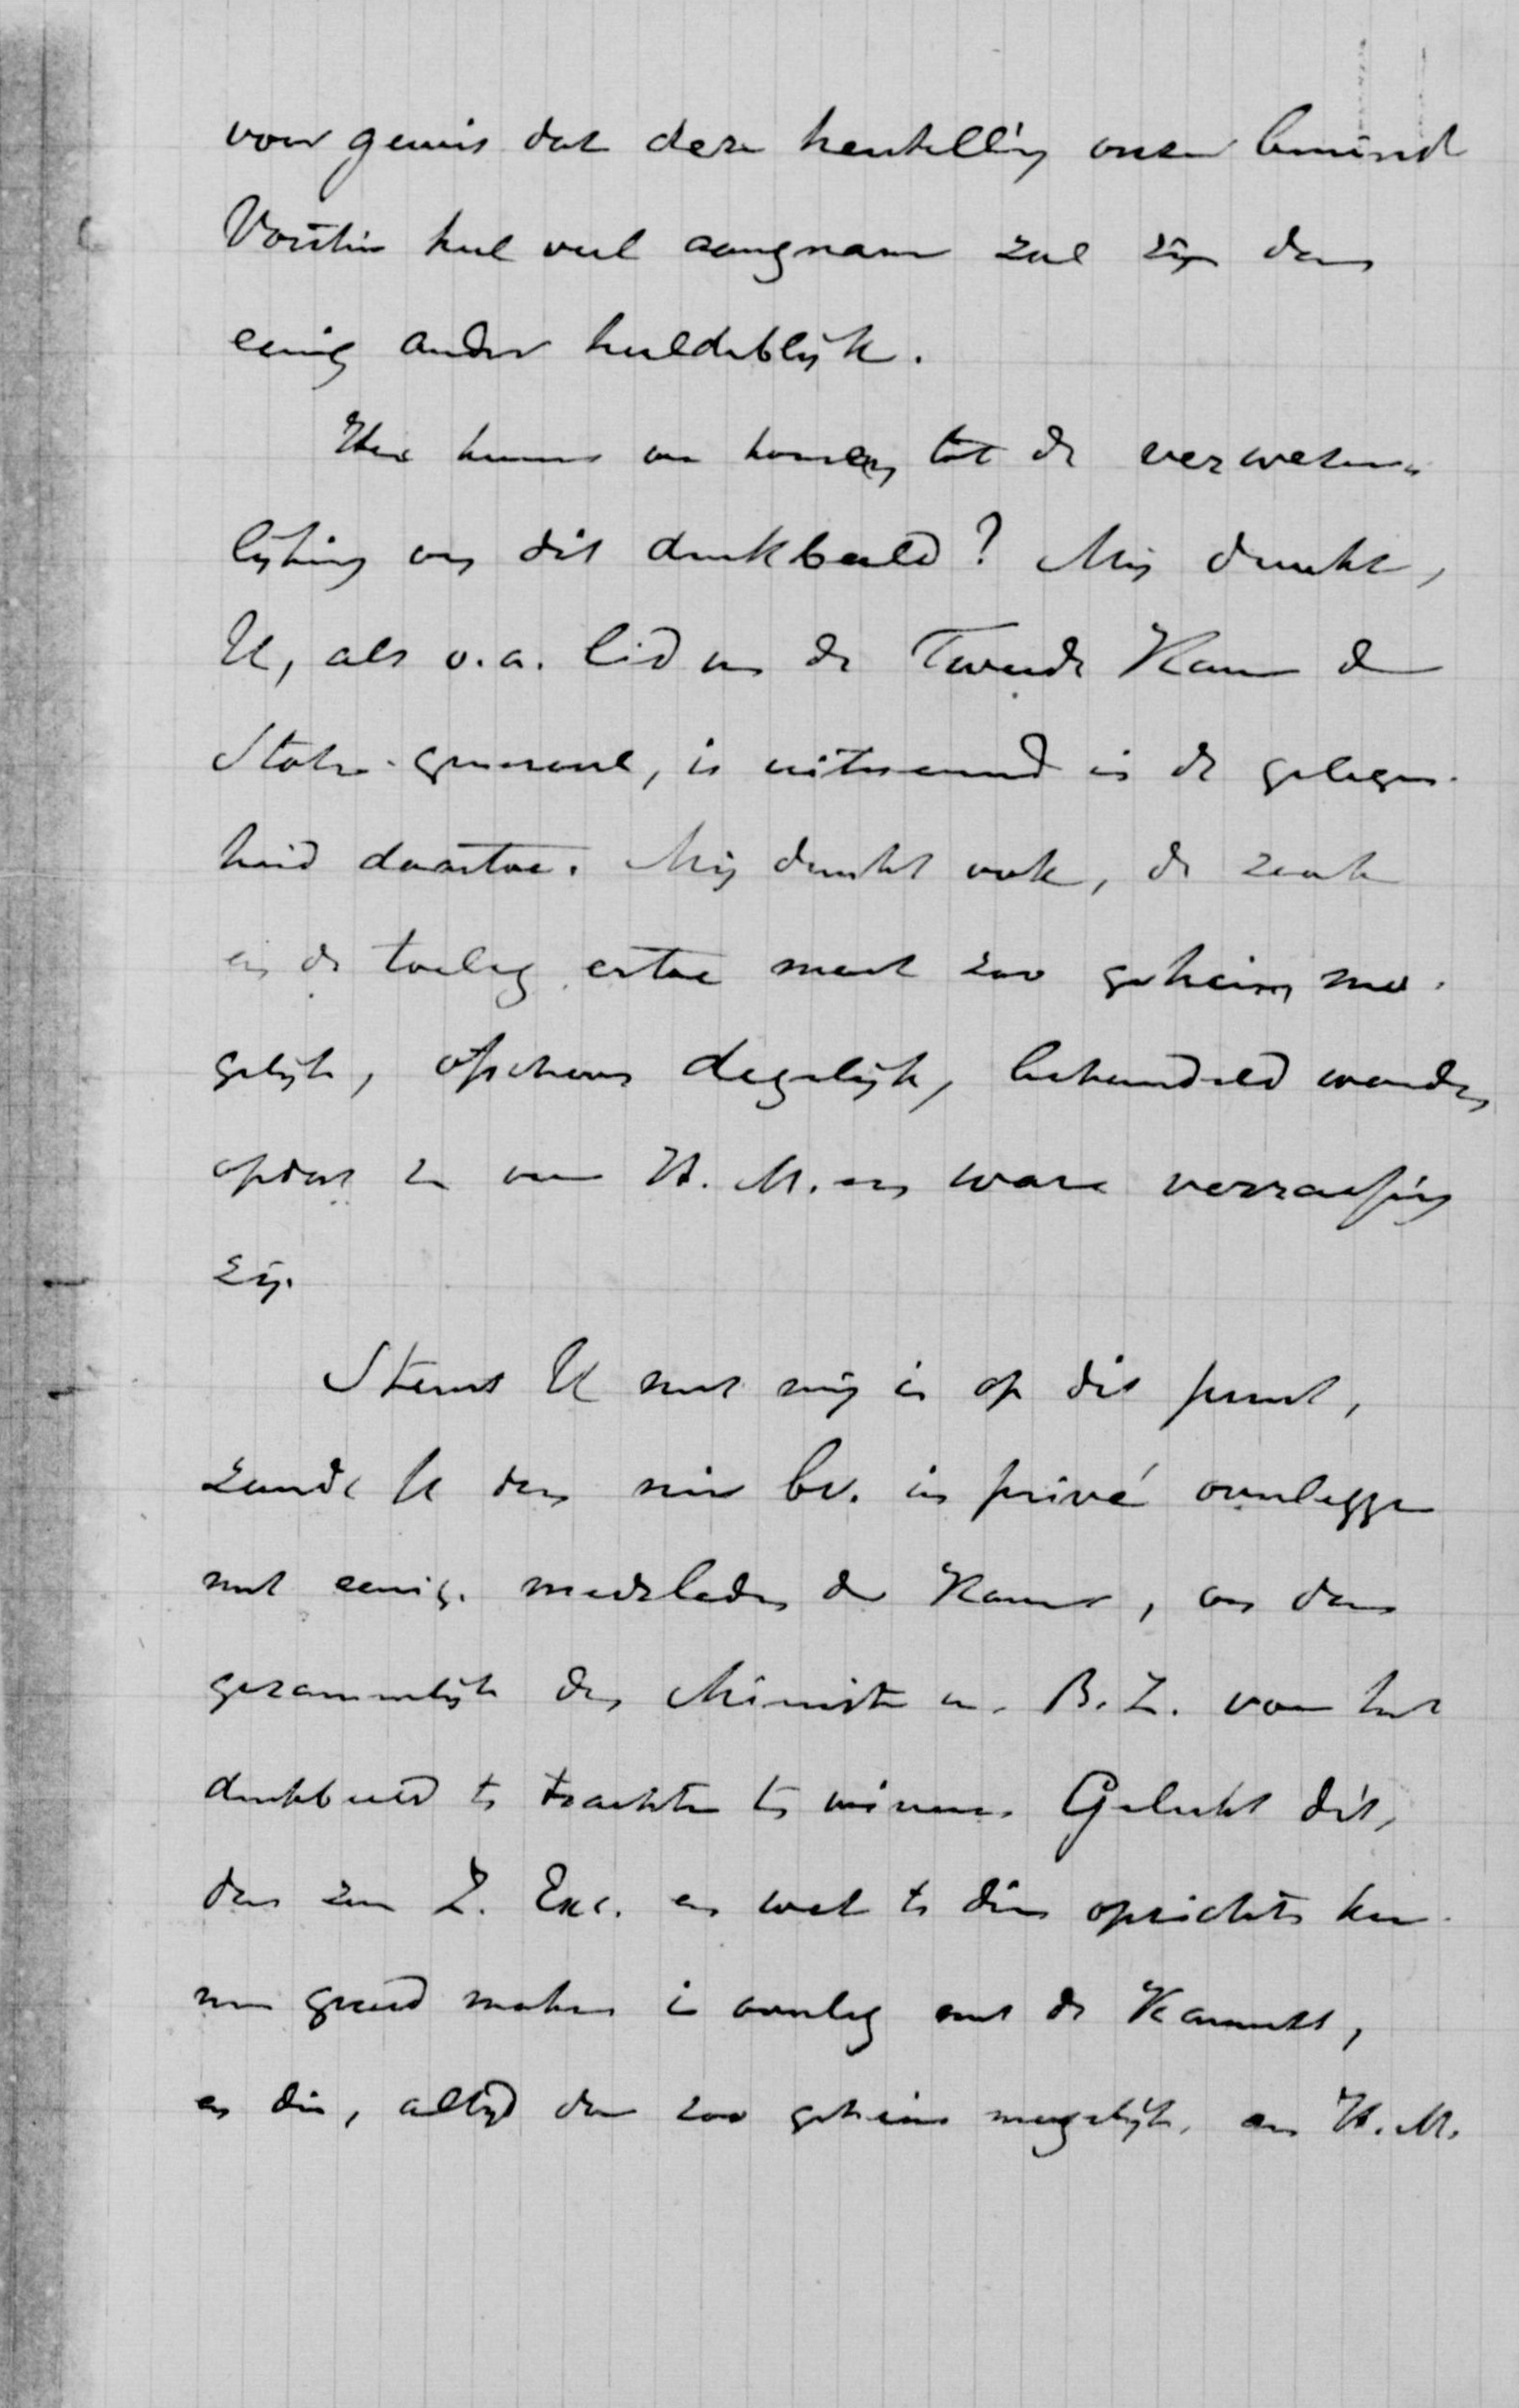 voor gewis dat deze herstelling onzer beminde
Vorstin heel veel aangenamer zal zijn dan
eenig ander huldeblijk.
Hoe kunnen we komen tot de verwezen-
lijking van dit denkbeeld? Mij dunkt,
U, als o.a. lid van de Tweede Kamer der
Staten-generaal, is uitnemend in de gelegen-
heid daartoe. Mij dunkt ook, de zaak
en de toeleg ertoe moet zoo geheim mo-
gelijk, ofschoon degelijk, behandeld worden,
opdat ze voor H. M. een ware verrassing
zij.
Stemt U met mij in op dit punt,
zoudt U dan niet bv. in privé overleggen
met eenige medeleden der Kamer, om dan
gezamenlijk den Minister v. B. Z. voor het
denkbeeld te trachten te winnen. Gelukt dit,
dan zou Z. Exc. een wet te dien opzichte kun-
nen gereed maken in overleg met de Kamers,
en die, altijd door zoo geheim mogelijk, aan H. M.